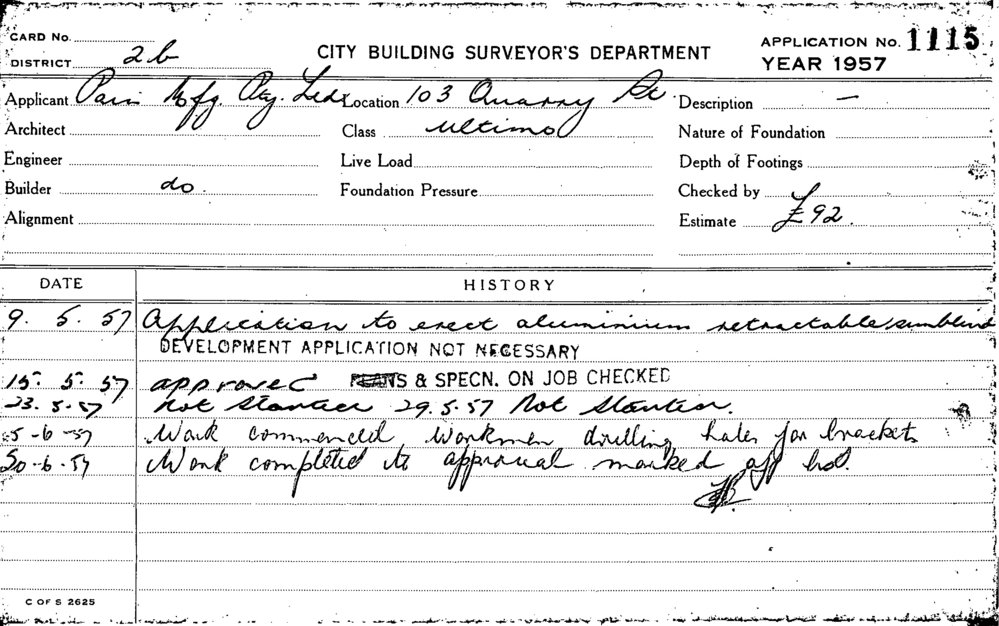 CARD No.
DISTRICT 2b
CITY BUILDING SURVEYOR'S DEPARTMENT
APPLICATION No. 1115
YEAR 1957
Applicant Pain Mfg Pty. Ltd. Location 103 Quarry St Description —
Architect Class Ultimo Nature of Foundation
Engineer Live Load Depth of Footings
Builder do. Foundation Pressure Checked by
Alignment Estimate £92.
DATE HISTORY
9. 5. 57 Application to erect aluminium retractable sunblind
DEVELOPMENT APPLICATION NOT NECESSARY
15. 5. 57 approved PLANS & SPECN. ON JOB CHECKED
23. 5. 57 Not Started 29. 5. 57 Not Started.
5-6-57 Work commenced, workmen drilling holes for brackets
-6-57 Work completed to approval marked off
C OF S 2625